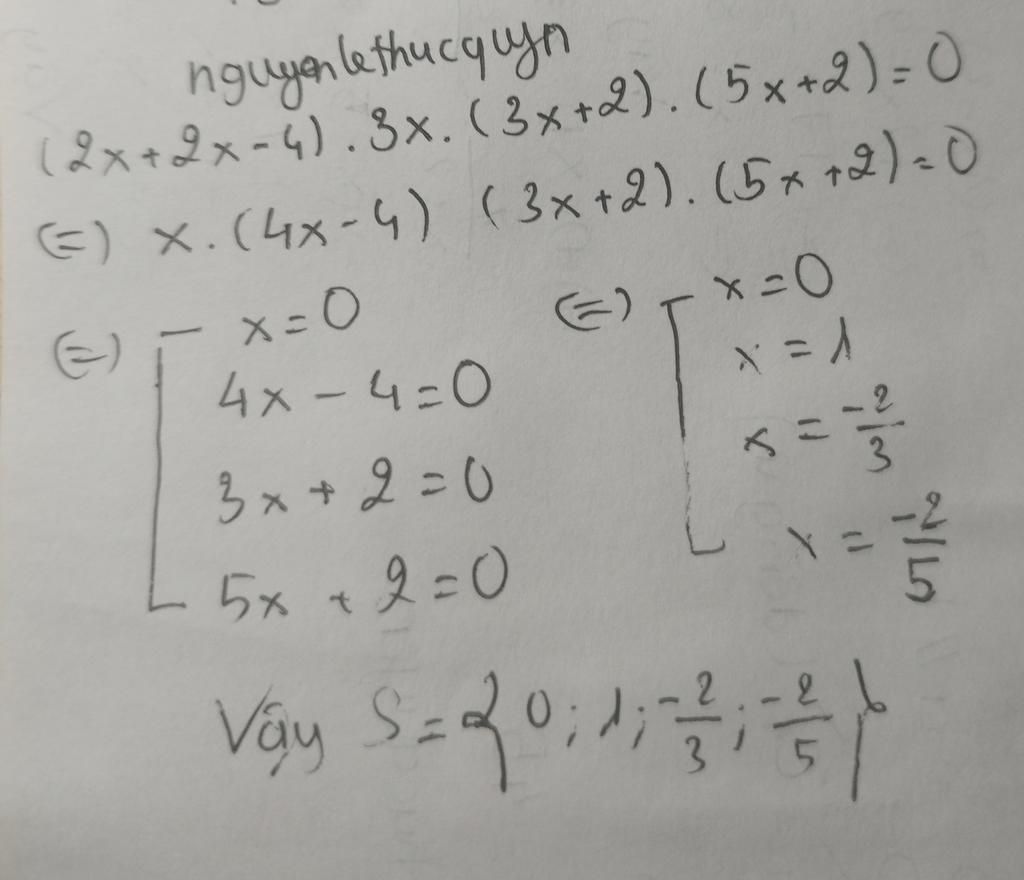 nguyenlethucquyn
(2x+2x-4).3x.(3x+2).(5x+2)=0
(=) x.(4x-4) (3x+2).(5x+2)=0
(=) [ x=0
4x-4=0
3x+2=0
5x+2=0
(=) [ x=0
x=1
x=-2/3
x=-2/5
Vậy S={0;1;-2/3;-2/5}